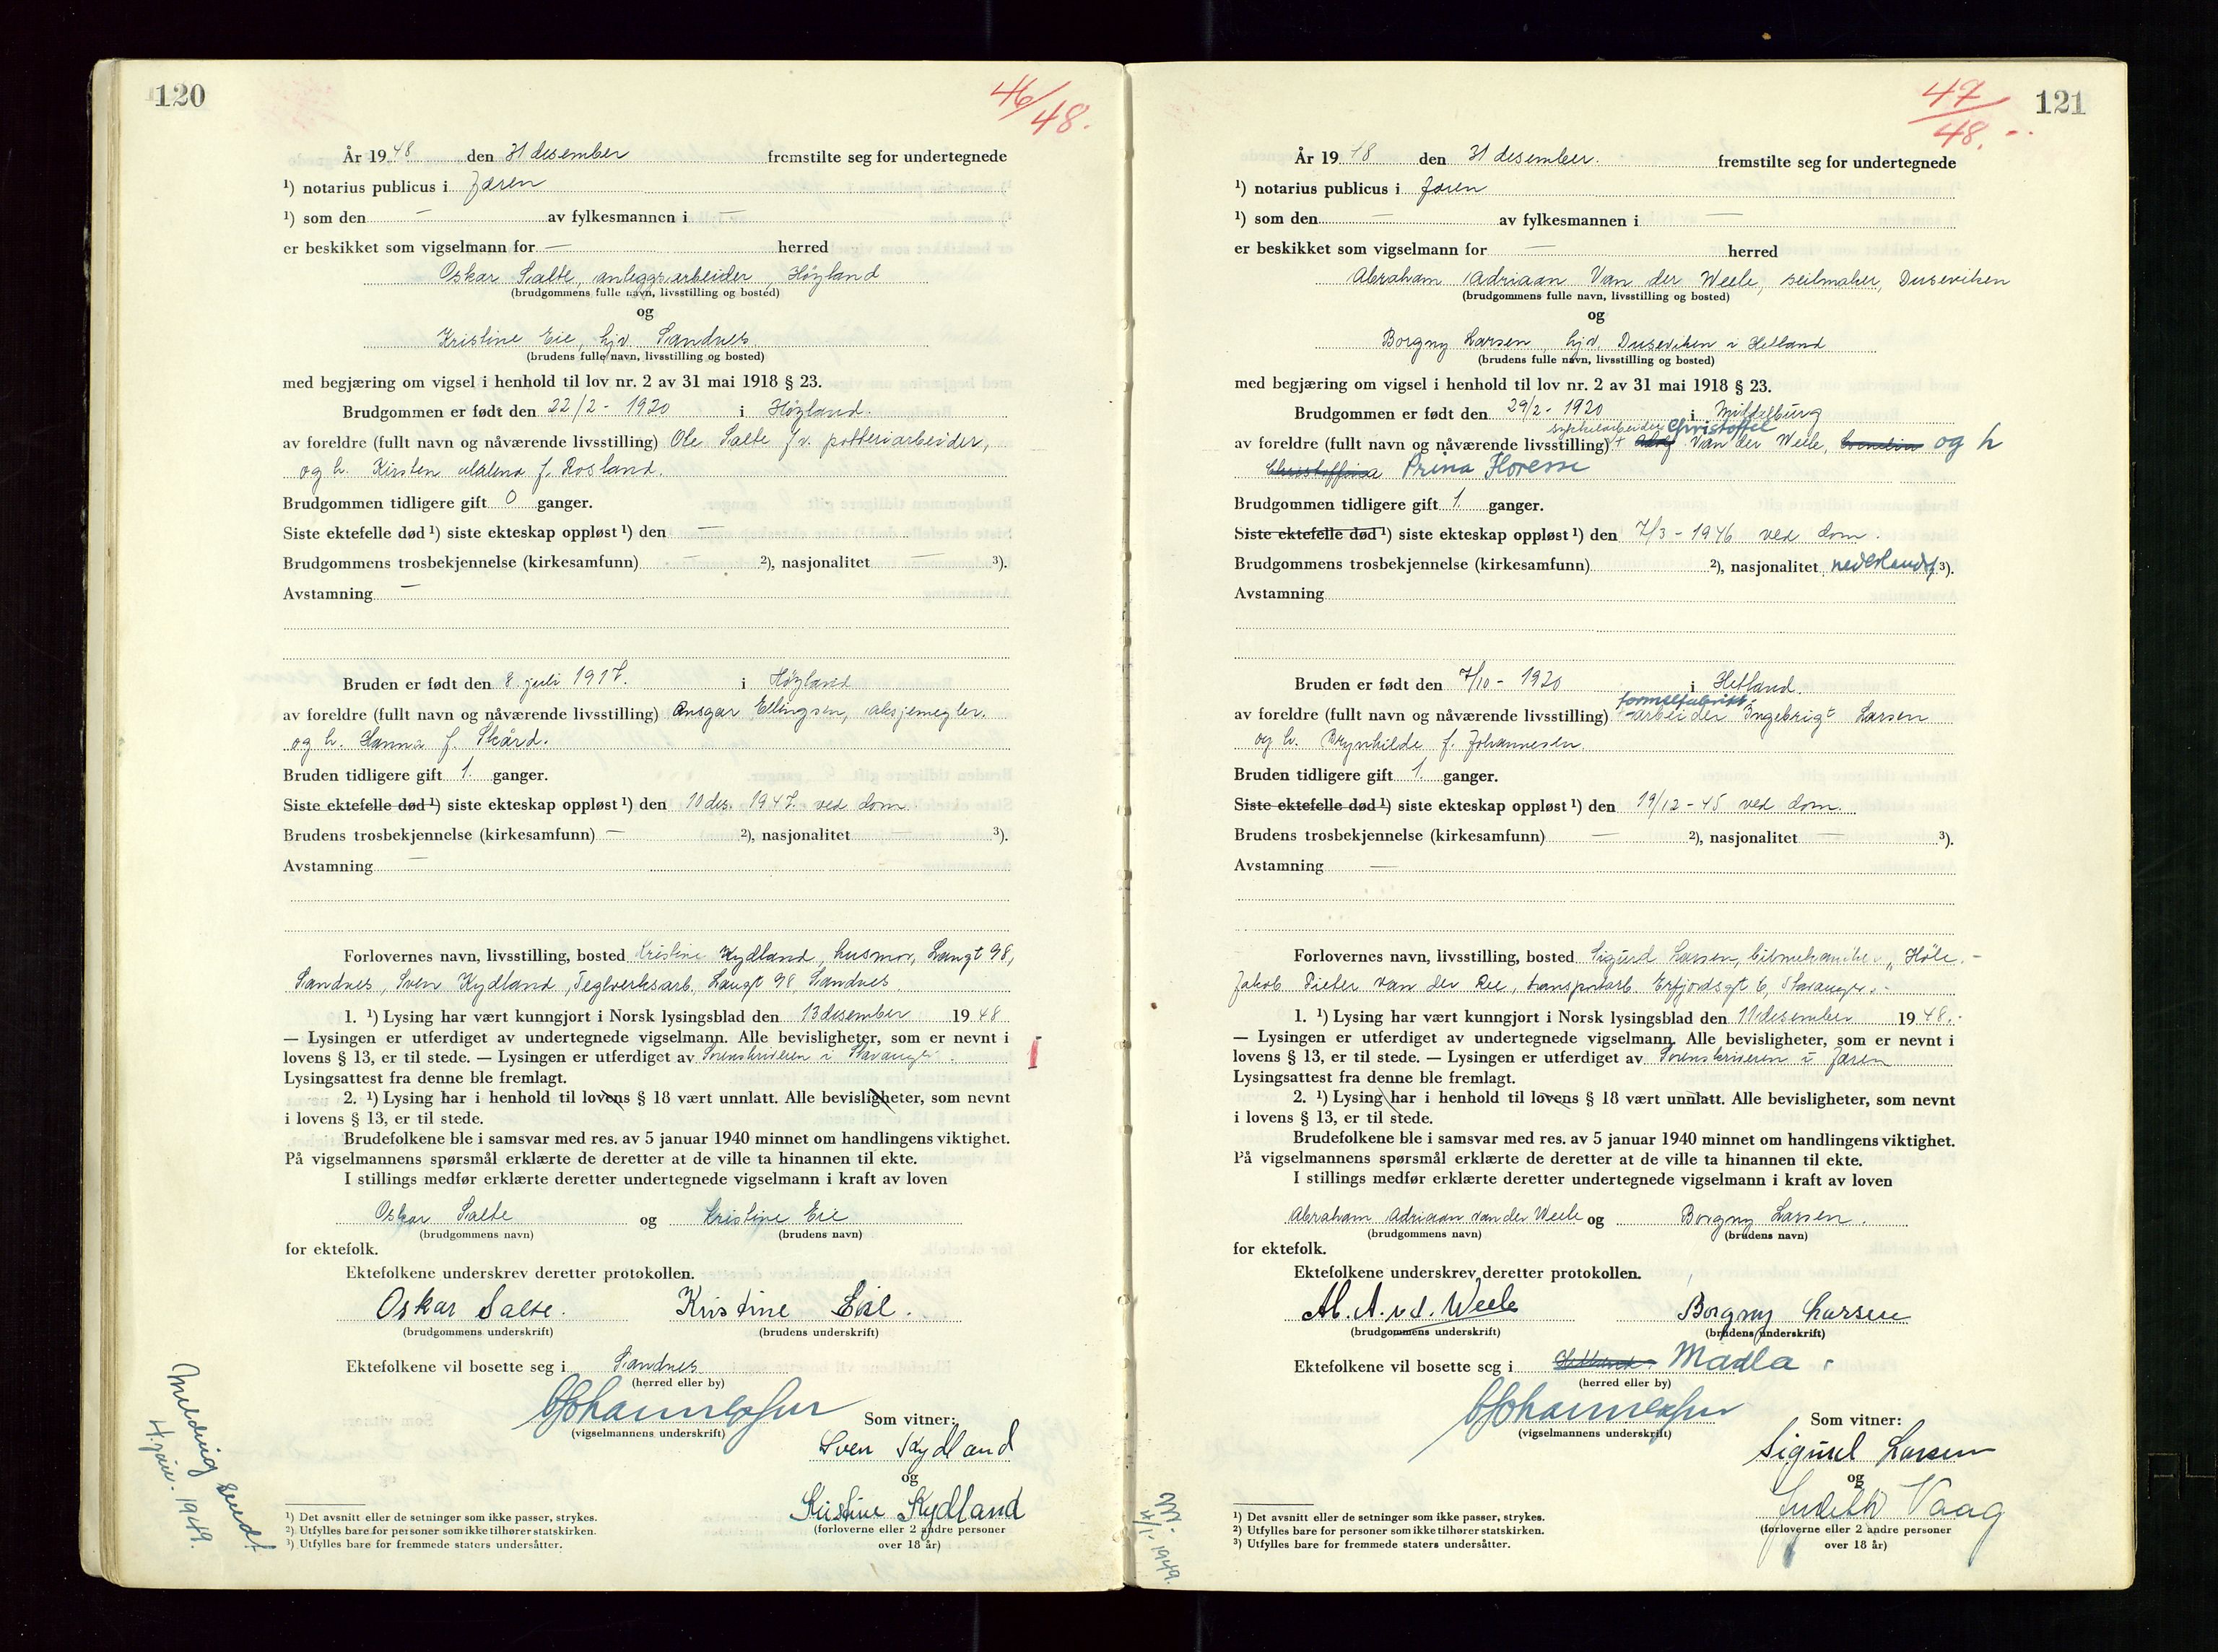 120
46/48.
År 1948 den 31 desember fremstilte seg for undertegnede
¹) notarius publicus i Jæren
¹) som den — av fylkesmannen i —
er beskikket som vigselmann for — herred
Oskar Salte, anleggsarbeider, Høyland
(brudgommens fulle navn, livsstilling og bosted)
og
Kristine Eie, hjv. Sandnes
(brudens fulle navn, livsstilling og bosted)
med begjæring om vigsel i henhold til lov nr. 2 av 31 mai 1918 § 23.
Brudgommen er født den 22/2 - 1920 i Høyland.
av foreldre (fullt navn og nåværende livsstilling) Ole Salte f.v. potteriarbeider,
og h. Kirsten Malena f. Rosland.
Brudgommen tidligere gift 0 ganger.
Siste ektefelle død ¹) siste ekteskap oppløst ¹) den —
Brudgommens trosbekjennelse (kirkesamfunn) — ²), nasjonalitet — ³).
Avstamning —
Bruden er født den 8. juli 1917. i Høyland
av foreldre (fullt navn og nåværende livsstilling) Ansgar Ellingsen, aksjemegler.
og h. Hanna f. Skård.
Bruden tidligere gift 1. ganger.
Siste ektefelle død ¹) siste ekteskap oppløst ¹) den 10 des. 1947. ved dom
Brudens trosbekjennelse (kirkesamfunn) — ²), nasjonalitet — ³).
Avstamning —
Forlovernes navn, livsstilling, bosted Kristine Kydland, husmor, Langt 98,
Sandnes, Sven Kydland, Teglverksarb. Langt 98, Sandnes.
1. ¹) Lysing har vært kunngjort i Norsk lysingsblad den 13 desember 1948
— Lysingen er utferdiget av undertegnede vigselmann. Alle bevisligheter, som er nevnt i
lovens § 13, er til stede. — Lysingen er utferdiget av Sorenskriveren i Stavanger.
Lysingsattest fra denne ble fremlagt.
2. ¹) Lysing har i henhold til lovens § 18 vært unnlatt. Alle bevisligheter, som nevnt
i lovens § 13, er til stede.
Brudefolkene ble i samsvar med res. av 5 januar 1940 minnet om handlingens viktighet.
På vigselmannens spørsmål erklærte de deretter at de ville ta hinannen til ekte.
I stillings medfør erklærte deretter undertegnede vigselmann i kraft av loven
Oskar Salte og Kristine Eie
(brudgommens navn) (brudens navn)
for ektefolk.
Ektefolkene underskrev deretter protokollen.
Oskar Salte. Kristine Eie.
(brudgommens underskrift) (brudens underskrift)
Ektefolkene vil bosette seg i Sandnes
(herred eller by)
(vigselmannens underskrift)
Som vitner:
Sven Kydland
og
Kristine Kydland
(forloverne eller 2 andre personer
over 18 år)
Melding sendt
4. jan. 1949.
¹) Det avsnitt eller de setninger som ikke passer, strykes.
²) Utfylles bare for personer som ikke tilhører statskirken.
³) Utfylles bare for fremmede staters undersåtter.
121
47/48.
År 1948 den 31 desember. fremstilte seg for undertegnede
¹) notarius publicus i Jæren
¹) som den — av fylkesmannen i —
er beskikket som vigselmann for — herred
Abraham Adriaan Van der Weele, seilmaker, Duseviken
(brudgommens fulle navn, livsstilling og bosted)
og
Borgny Larsen, hjv. Duseviken i Hetland
(brudens fulle navn, livsstilling og bosted)
med begjæring om vigsel i henhold til lov nr. 2 av 31 mai 1918 § 23.
Brudgommen er født den 29/2 - 1920 i Middelburg
sykkelarbeider Christoffel
av foreldre (fullt navn og nåværende livsstilling) Van der Weele, og h
Prina Floresse
Brudgommen tidligere gift 1. ganger.
Siste ektefelle død ¹) siste ekteskap oppløst ¹) den 7/3 - 1946 ved dom.
Brudgommens trosbekjennelse (kirkesamfunn) ²), nasjonalitet nederlandsk ³).
Avstamning
Bruden er født den 7/10 - 1920 i Hetland.
av foreldre (fullt navn og nåværende livsstilling) -arbeider Ingebrigt Larsen
og h. Brynhilde f. Johannesen.
Bruden tidligere gift 1. ganger.
Siste ektefelle død ¹) siste ekteskap oppløst ¹) den 19/12 - 45 ved dom.
Brudens trosbekjennelse (kirkesamfunn) — ²), nasjonalitet — ³).
Avstamning —
Forlovernes navn, livsstilling, bosted Sigurd Larsen, bilmekaniker, Høle.-
Jakob Pieter van der Ree, transportarb. Erfjordsgt 6, Stavanger.-
1. ¹) Lysing har vært kunngjort i Norsk lysingsblad den 11 desember 1948.-
— Lysingen er utferdiget av undertegnede vigselmann. Alle bevisligheter, som er nevnt i
lovens § 13, er til stede. — Lysingen er utferdiget av Sorenskriveren i Jæren
Lysingsattest fra denne ble fremlagt.
2. ¹) Lysing har i henhold til lovens § 18 vært unnlatt. Alle bevisligheter, som nevnt
i lovens § 13, er til stede.
Brudefolkene ble i samsvar med res. av 5 januar 1940 minnet om handlingens viktighet.
På vigselmannens spørsmål erklærte de deretter at de ville ta hinannen til ekte.
I stillings medfør erklærte deretter undertegnede vigselmann i kraft av loven
Abraham Adriaan van der Weele og Borgny Larsen.
(brudgommens navn) (brudens navn)
for ektefolk.
Ektefolkene underskrev deretter protokollen.
Ab. A. v. d. Weele Borgny Larsen
(brudgommens underskrift) (brudens underskrift)
Ektefolkene vil bosette seg i Madla
(herred eller by)
(vigselmannens underskrift)
Som vitner:
Sigurd Larsen
og
Judith Vaag
(forloverne eller 2 andre personer
over 18 år)
4/1. 1949.
¹) Det avsnitt eller de setninger som ikke passer, strykes.
²) Utfylles bare for personer som ikke tilhører statskirken.
³) Utfylles bare for fremmede staters undersåtter.